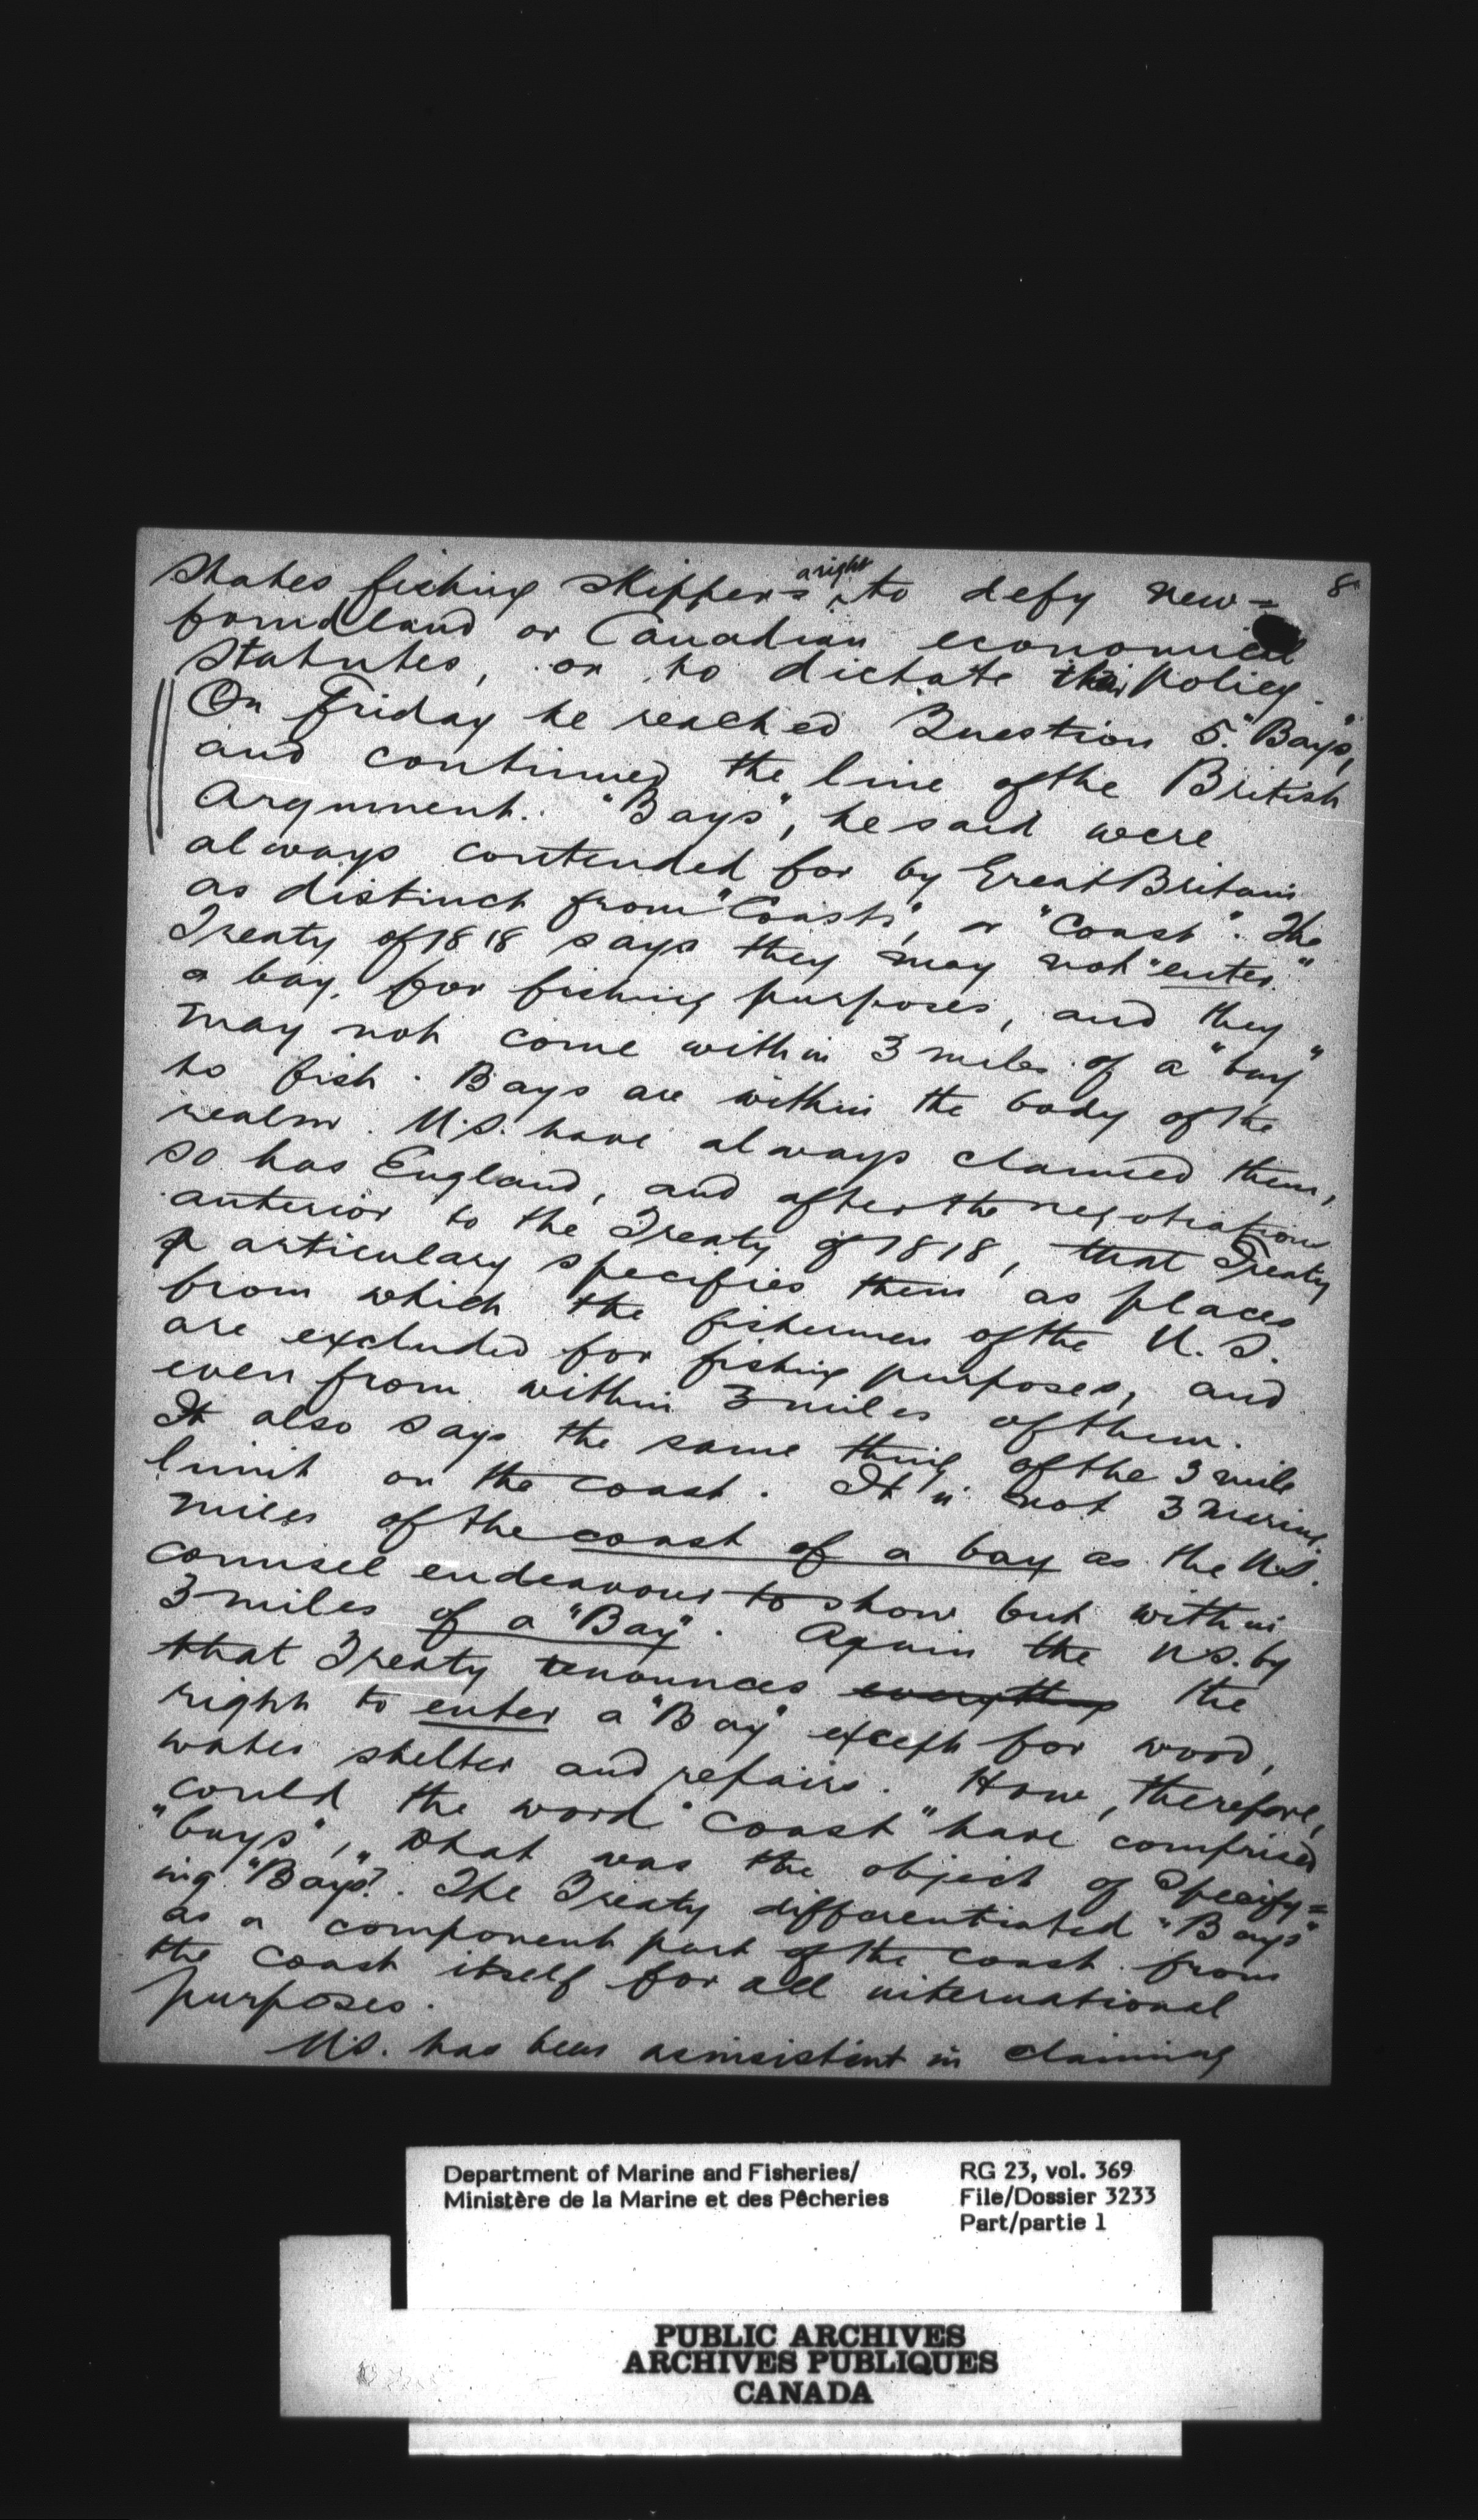 8
States fishing skippers a right to defy New=
foundland or Canadian economical
Statutes, or to dictate their policy.
On Friday he reached Question 5. "Bays",
and continued the line of the British
Argument. "Bays", he said were
always contended for by Great Britain
as distinct from "Coasts", or "Coast". The
Treaty of 1818 says they may not "enter"
a bay, for fishing purposes, and they
may not come within 3 miles of a "bay"
to fish. Bays are within the body of the
realm. U.S. have always claimed them,
so has England, and after the negotiations
anterior to the Treaty of 1818, that Treaty
particulary specifies them as places
from which the fishermen of the U.S.
are excluded for fishing purposes, and
even from within 3 miles of them.
It also says the same thing of the 3 mile
limit on the coast. It is not 3 marine
miles of the coast of a bay as the U.S.
counsel endeavour to show but within
3 miles of a "Bay". Again the U.S. by
that Treaty renounces everything the
right to enter a "Bay" except for wood,
water shelter and repairs. How, therefore,
could the word "coast" have comprised
"bays", what was the object of specify=
ing "Bays"?. The Treaty differentiated "Bays"
as a component part of the coast from
the coast itself for all international
purposes.
U.S. has been as insistent in claiming
Department of Marine and Fisheries/
Ministère de la Marine et des Pêcheries
RG 23, vol. 369
File/Dossier 3233
Part/partie 1
PUBLIC ARCHIVES
ARCHIVES PUBLIQUES
CANADA